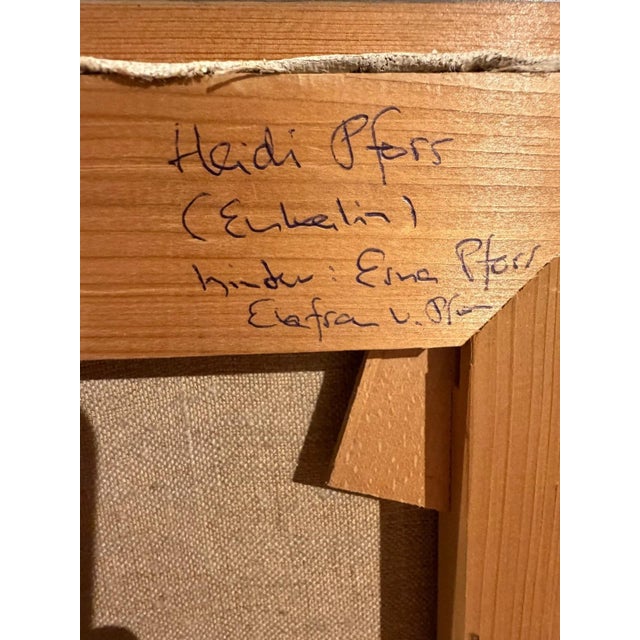 Heidi Pforr
(Enkelin)
hinten: Erna Pforr
Ehefrau v.